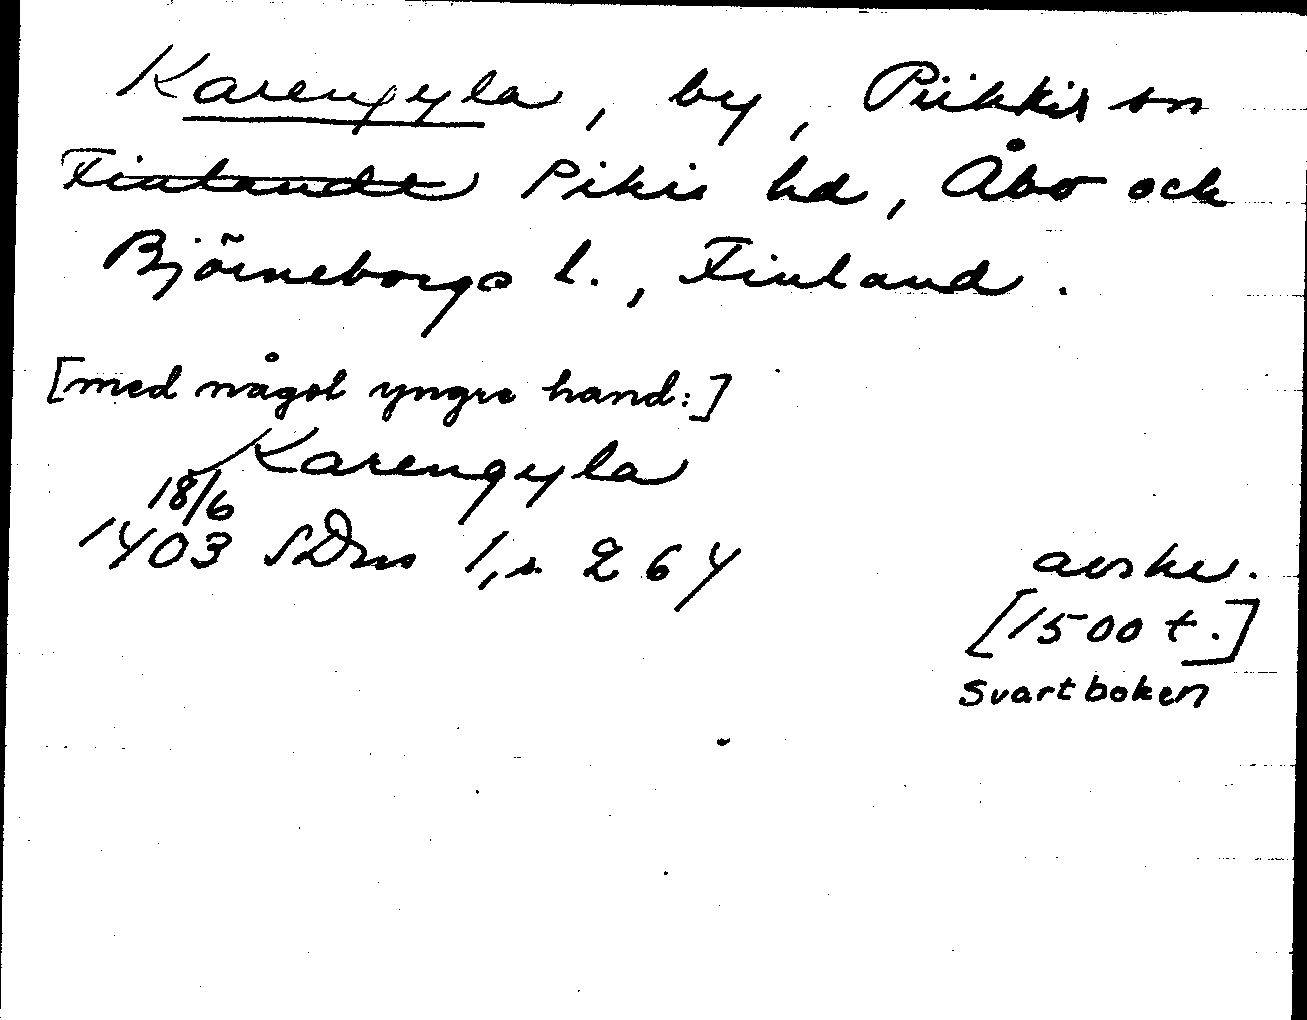 Karengyla, by, Piikkis sn
Finlandt Pikis hd, Åbo och
Björneborgs l., Finland.
[med något yngre hand:]
Karengyla
18/6
1403 SDns 1, s. 264 avskr.
[1500 t.]
Svartboken